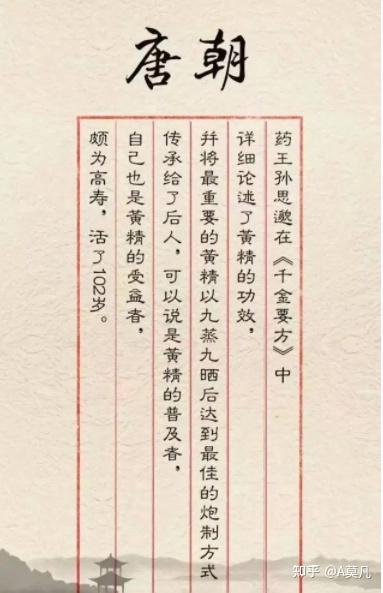 唐朝
药王孙思邈在《千金要方》中
详细论述了黄精的功效，
并将最重要的黄精以九蒸九晒后达到最佳的炮制方式
传承给了后人，可以说是黄精的普及者，
自己也是黄精的受益者，
颇为高寿，活了102岁。
知乎 @A莫凡